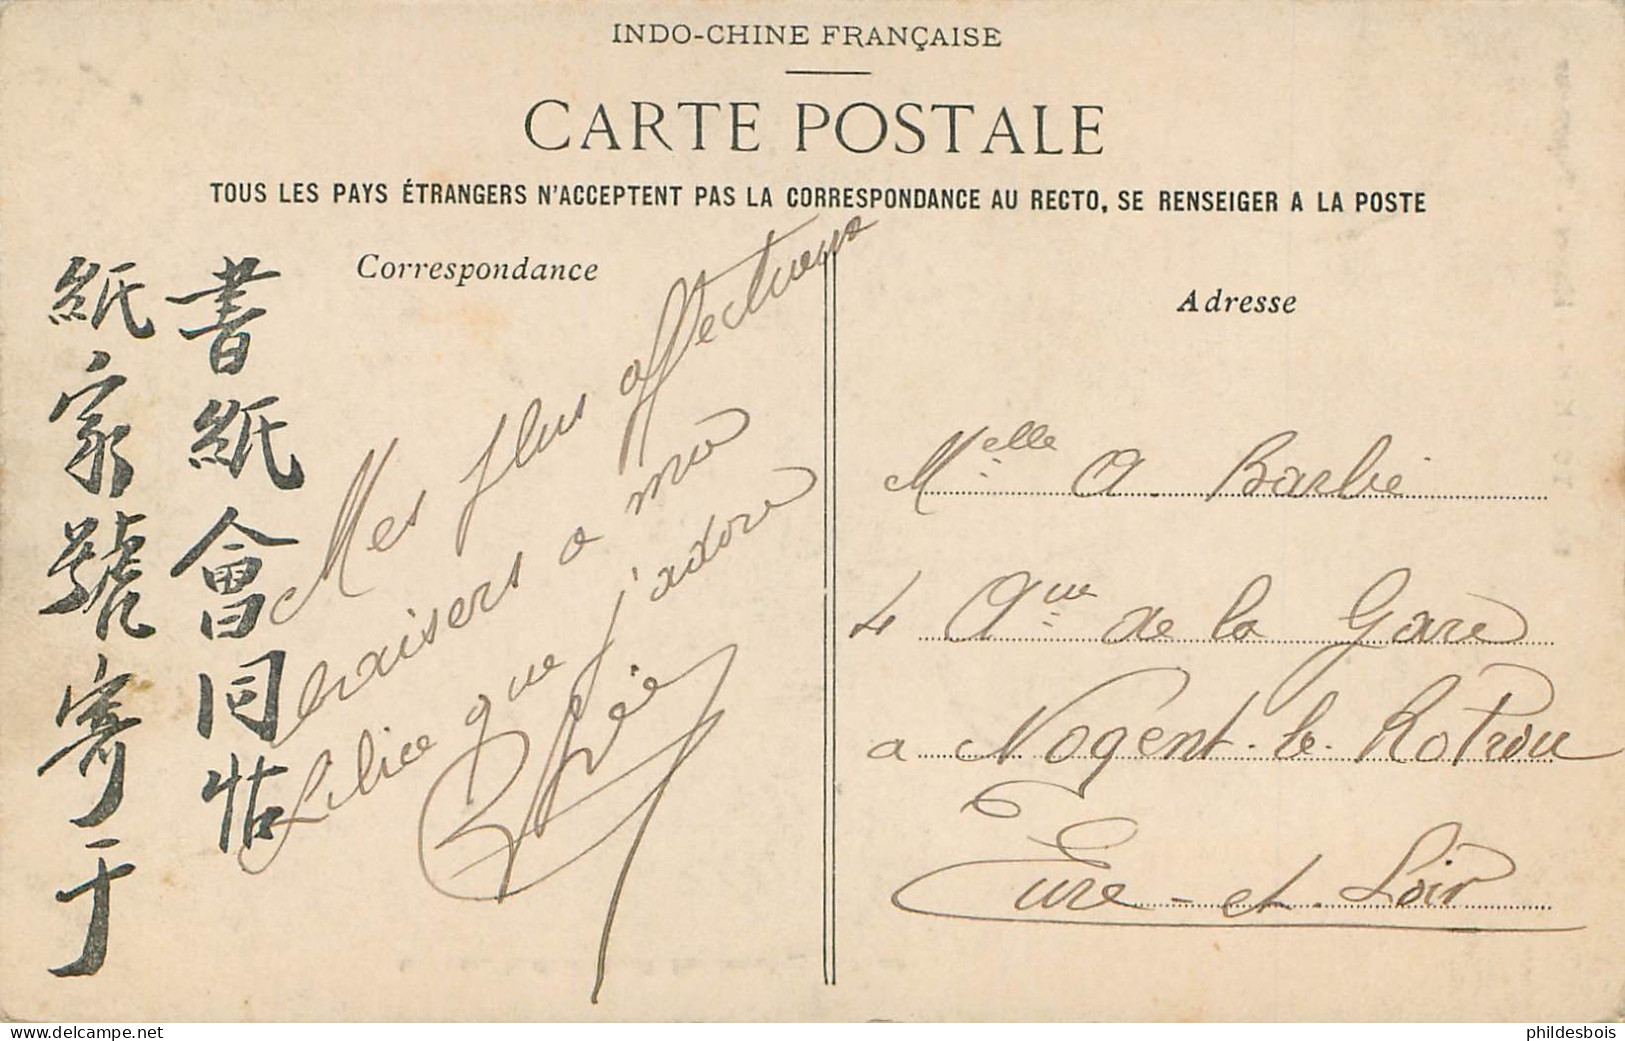 INDO-CHINE FRANÇAISE
CARTE POSTALE
TOUS LES PAYS ÉTRANGERS N'ACCEPTENT PAS LA CORRESPONDANCE AU RECTO, SE RENSEIGER A LA POSTE
Correspondance
Adresse
書紙會同帖
紙家號寄于
Mes plus affectueux
baisers a ma
Lilice que j'adore
Melle A. Barbié
4 Aue de la Gare
a Nogent-le-Rotrou
Eure-et-Loir
www.delcampe.net
phildesbois